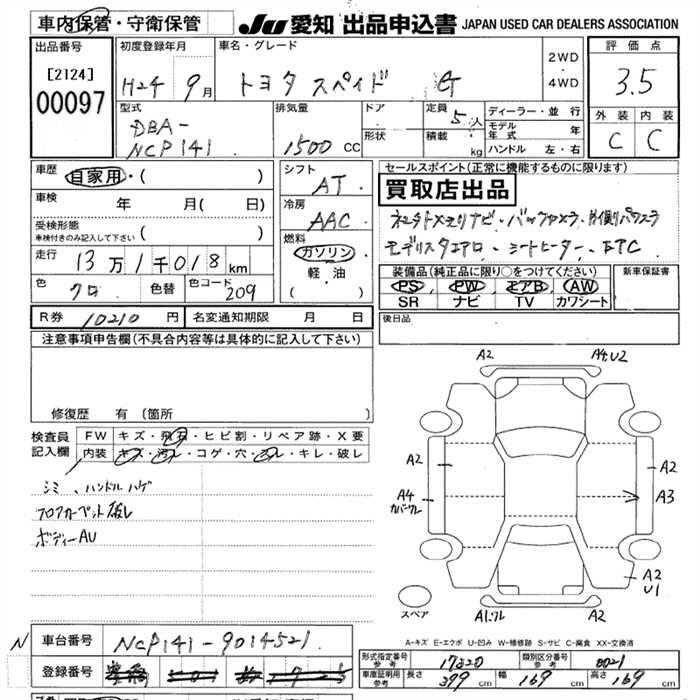 車内保管・守衛保管
JU 愛知 出品申込書 JAPAN USED CAR DEALERS ASSOCIATION
出品番号
[2124]
00097
初度登録年月
H24 9月
車名・グレード
トヨタ スペイド G
2WD
・
4WD
評価点
3.5
外装 内装
C C
型式
DBA-
NCP141
排気量
1500 CC
ドア
形状
定員 5人
積載 kg
ディーラー・並行
モデル年式 年
ハンドル 左・右
車歴 自家用・( )
車検 年 月( 日)
受検形態
車検付きのみ記入して下さい ( )
走行 13万1千018km
色 クロ 色替 色コード 209
シフト
AT
冷房
AAC
燃料
ガソリン
軽・油
( )
セールスポイント(正常に機能するものに限ります)
買取店出品
モデリスタエアロ・シートヒーター・ETC
装備品(純正品に限り○をつけてください)
PS・PW・エアB・AW
SR ナビ TV カワシート
新車保証書
R券 10210円 名変通知期限 月 日
後日品
注意事項申告欄(不具合内容等は具体的に記入して下さい)
修復歴 有(箇所 )
検査員
記入欄
FW キズ・飛石・ヒビ割・リペア跡・X要
内装 キズ・汚レ・コゲ・穴・スレ・キレ・破レ
シミ、ハンドルハゲ
フロアカーペット破レ
ボディーAU
A2
A4.U2
A2
A2
A4
カバーワレ
A3
A2
U1
スペア
A1.ワレ
A-キズ E-エクボ U-凹み W-補修跡 S-サビ C-腐食 XX-交換済
N
車台番号 NCP141-9014521
登録番号
形式指定番号
参考
17320
類別区分番号
参考
0021
車庫証明用
参考
長さ 399cm 幅 169cm 高さ 169cm